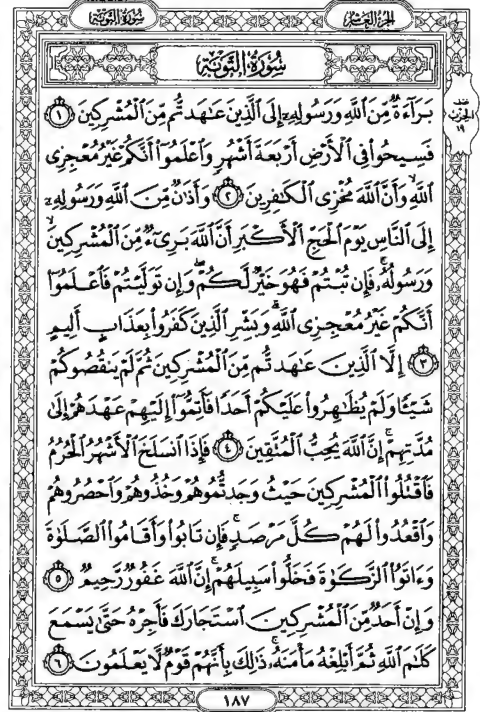 الجزء العاشر
سورة التوبة
سُورَةُ التَّوْبَةِ
بَرَآءَةٌ مِّنَ ٱللَّهِ وَرَسُولِهِۦٓ إِلَى ٱلَّذِينَ عَٰهَدتُّم مِّنَ ٱلْمُشْرِكِينَ ١
فَسِيحُوا۟ فِى ٱلْأَرْضِ أَرْبَعَةَ أَشْهُرٍ وَٱعْلَمُوٓا۟ أَنَّكُمْ غَيْرُ مُعْجِزِى
ٱللَّهِ وَأَنَّ ٱللَّهَ مُخْزِى ٱلْكَٰفِرِينَ ٢ وَأَذَٰنٌ مِّنَ ٱللَّهِ وَرَسُولِهِۦٓ
إِلَى ٱلنَّاسِ يَوْمَ ٱلْحَجِّ ٱلْأَكْبَرِ أَنَّ ٱللَّهَ بَرِىٓءٌ مِّنَ ٱلْمُشْرِكِينَ
وَرَسُولُهُۥ فَإِن تُبْتُمْ فَهُوَ خَيْرٌ لَّكُمْ وَإِن تَوَلَّيْتُمْ فَٱعْلَمُوٓا۟
أَنَّكُمْ غَيْرُ مُعْجِزِى ٱللَّهِ وَبَشِّرِ ٱلَّذِينَ كَفَرُوا۟ بِعَذَابٍ أَلِيمٍ
٣ إِلَّا ٱلَّذِينَ عَٰهَدتُّم مِّنَ ٱلْمُشْرِكِينَ ثُمَّ لَمْ يَنقُصُوكُمْ
شَيْـًٔا وَلَمْ يُظَٰهِرُوا۟ عَلَيْكُمْ أَحَدًا فَأَتِمُّوٓا۟ إِلَيْهِمْ عَهْدَهُمْ إِلَىٰ
مُدَّتِهِمْ إِنَّ ٱللَّهَ يُحِبُّ ٱلْمُتَّقِينَ ٤ فَإِذَا ٱنسَلَخَ ٱلْأَشْهُرُ ٱلْحُرُمُ
فَٱقْتُلُوا۟ ٱلْمُشْرِكِينَ حَيْثُ وَجَدتُّمُوهُمْ وَخُذُوهُمْ وَٱحْصُرُوهُمْ
وَٱقْعُدُوا۟ لَهُمْ كُلَّ مَرْصَدٍ فَإِن تَابُوا۟ وَأَقَامُوا۟ ٱلصَّلَوٰةَ
وَءَاتَوُا۟ ٱلزَّكَوٰةَ فَخَلُّوا۟ سَبِيلَهُمْ إِنَّ ٱللَّهَ غَفُورٌ رَّحِيمٌ ٥
وَإِنْ أَحَدٌ مِّنَ ٱلْمُشْرِكِينَ ٱسْتَجَارَكَ فَأَجِرْهُ حَتَّىٰ يَسْمَعَ
كَلَٰمَ ٱللَّهِ ثُمَّ أَبْلِغْهُ مَأْمَنَهُۥ ذَٰلِكَ بِأَنَّهُمْ قَوْمٌ لَّا يَعْلَمُونَ ٦
الحزب
١٩
١٨٧